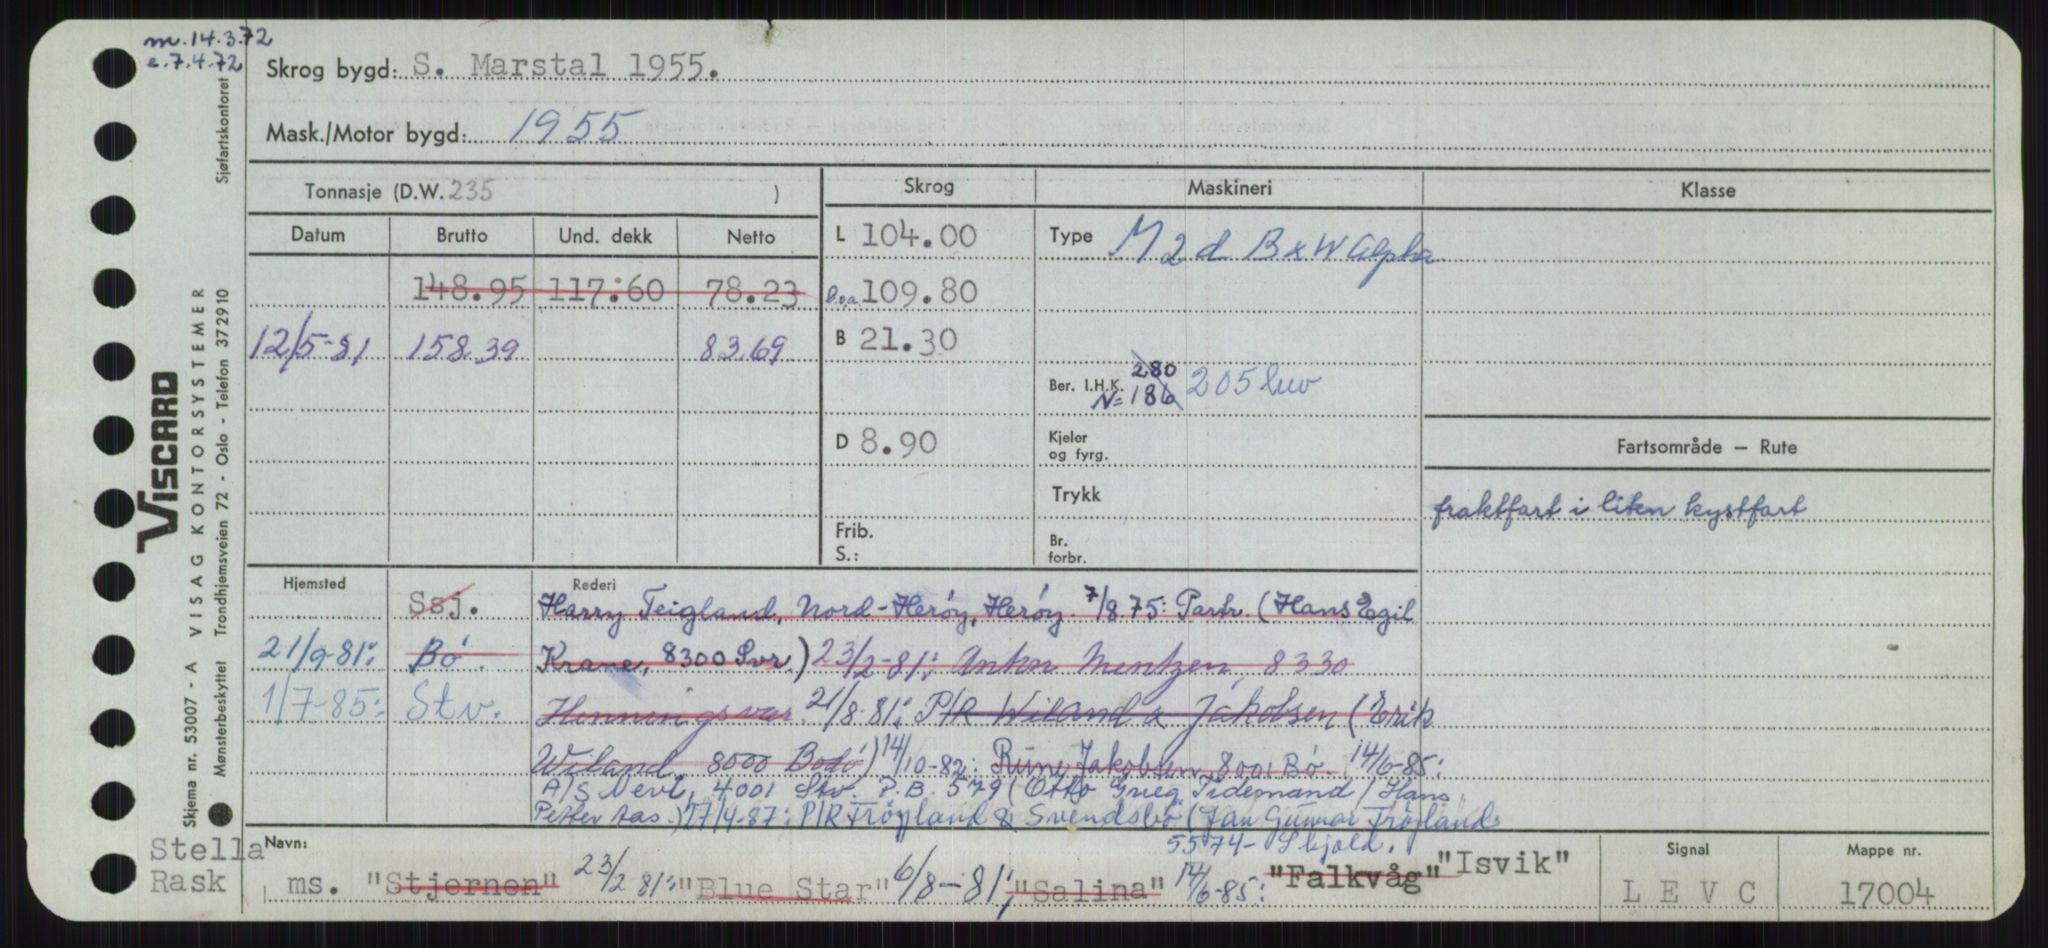 m. 14.3.72
e. 7.4.72
Skrog bygd: S. Marstal 1955.
Mask./Motor bygd: 1955
Tonnasje (D.W. 235 )
Skrog
Maskineri
Klasse
Datum Brutto Und. dekk Netto
L 104.00
Type M 2 d B x W Alpha
148.95 117.60 78.23
l.o.a 109.80
12/5-81 158.39 83.69
B 21.30
Ber. I.H.K. 280
N= 186 205 luv
D 8.90
Kjeler
og fyrg.
Fartsområde — Rute
Trykk
fraktfart i liten kystfart
Frib.
S.:
Br.
forbr.
Hjemsted
Rederi
Ssj. Harry Teigland, Nord-Herøy, Herøy. 7/8 75: Partr. (Hans Egil
21/9-81: Bö. Krane, 8300 Svr.) 23/2-81: Anton Mentzen, 8330
1/7-85: Stv. Henningsvær. 21/8-81: P/R Wiland & Jakobsen (Erik
Wiland, 8000 Bodö) 14/10-82: Rune Jakobsen 8001 Bö. 14/6-85:
A/S Nevi, 4001 Stv. P.B. 579 (Otto Grieg Tidemand / Hans
Petter Aas.) 27/4-87: P/R Fröyland & Svendsbö (Jan Gunnar Fröyland
5574 - Skjold.)
Stella
Rask
Navn:
ms. "Stjernen" 23/2-81: "Blue Star" 6/8-81: "Salina" 14/6-85: "Falkvåg" "Isvik"
Signal
L E V C
Mappe nr.
17004
Sjøfartskontoret
VISCARD
Skjema nr. 53007 - A VISAG KONTORSYSTEMER
Mønsterbeskyttet Trondhjemsveien 72 - Oslo - Telefon 372910